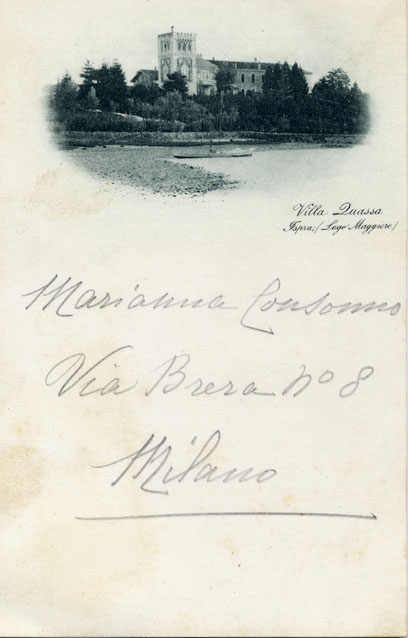 Villa Quassa
Ispra; (Lago Maggiore)
Marianna Consonno
Via Brera Nº 8
Milano